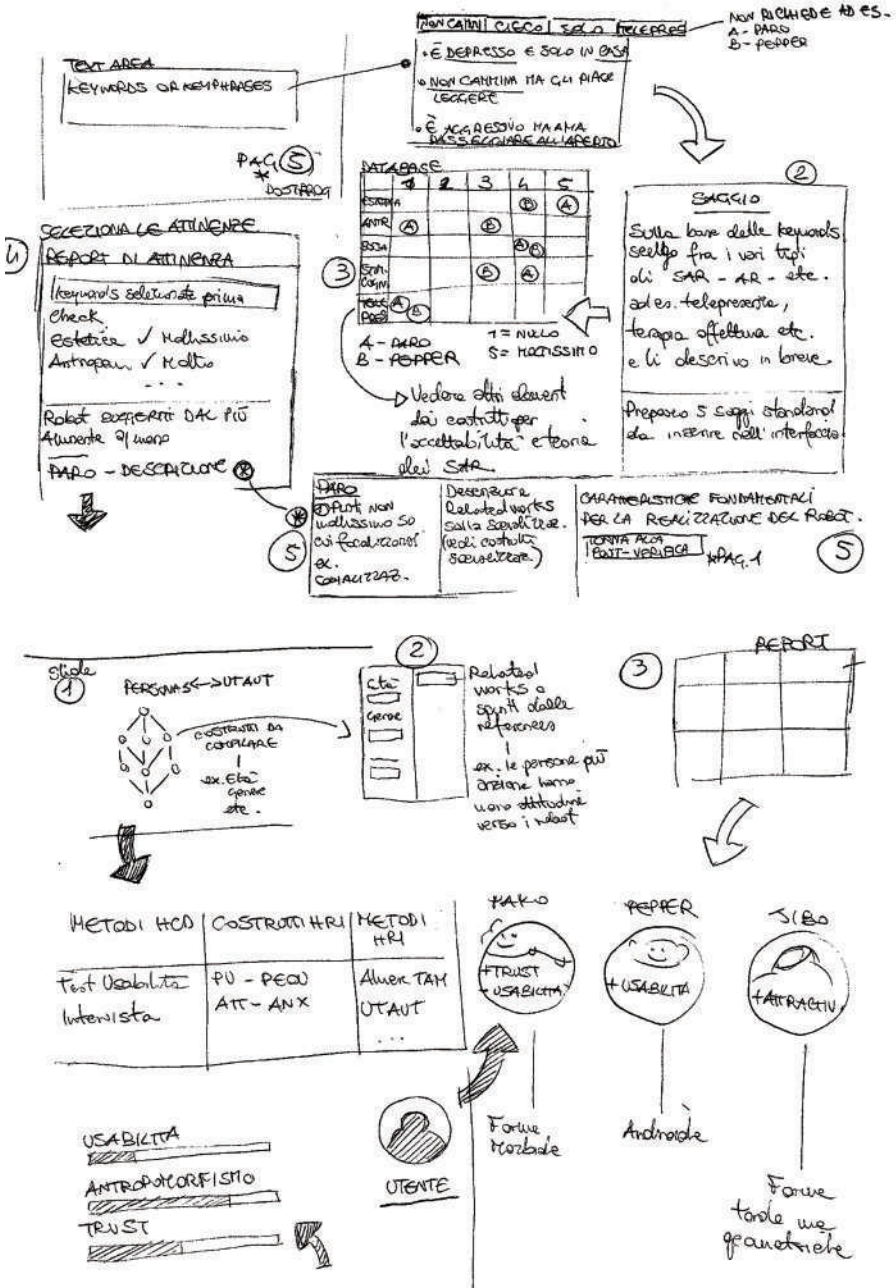 NON CAMM | CIECO | SOLO | TELEPRES
NON RICHIEDE AD ES.
A - PARO
B - PEPPER
• È DEPRESSO E SOLO IN CASA
• NON CAMMINA MA GLI PIACE
LEGGERE
• È AGGRESSIVO MA AMA
PASSEGGIARE ALL'APERTO
TEXT AREA
KEYWORDS OR KEYPHRASES
PAG. 5
*
DATABASE
1 2 3 4 5
ESTETICA B A
ANTR A B
A B
B A
A B
3
A - PARO
B - PEPPER
1 = NULLO
5 = MOLTISSIMO
Vedere altri element
dai costrutti per
l'accettabilità e teoria
dei SAR
2
SAGGIO
Sulla base delle keywords
scelgo fra i vari tipi
di SAR - AR - etc.
ad es. telepresente,
terapia affettiva etc.
e li descrivo in breve.
Preparo 5 saggi standard
da inserire nell'interfaccia
4
SELEZIONA LE ATTINENZE
REPORT DI ATTINENZA
Keywords selezionate prima
Check
Estetica ✓ Moltissimo
Antropom ✓ Molto
...
Robot SUGGERITI DAL PIÙ
Attinente al meno
PARO - DESCRIZIONE *
*
5
PARO
NON
moltissimo su
cui focalizzarsi
ex.
SOCIALIZZAZ.
Descrizione
Related works
sulla socializzaz.
(vedi costrutti
socializzaz.)
CARATTERISTICHE FONDAMENTALI
PER LA REALIZZAZIONE DEL ROBOT.
TORNA ALLA
POST-VERIFICA
*PAG. 1
5
Slide
1
PERSONAS <-> UTAUT
COSTRUTTI DA
COMPILARE
ex. Età
Genere
etc.
2
Età
Genere
Related
works o
spunti dalle
references
ex. le persone più
anziane hanno
meno attitudine
verso i robot
3
REPORT
METODI HCD | COSTRUTTI HRI | METODI
HRI
Test Usabilità PU - PEOU Almere TAM
Intervista ATT - ANX UTAUT
...
PARO
+TRUST
- USABILITÀ
Forme
Morbide
PEPPER
+USABILITÀ
Androide
JIBO
+ATTRACTIV.
Forme
tonde ma
geometriche
USABILITÀ
ANTROPOMORFISMO
TRUST
UTENTE